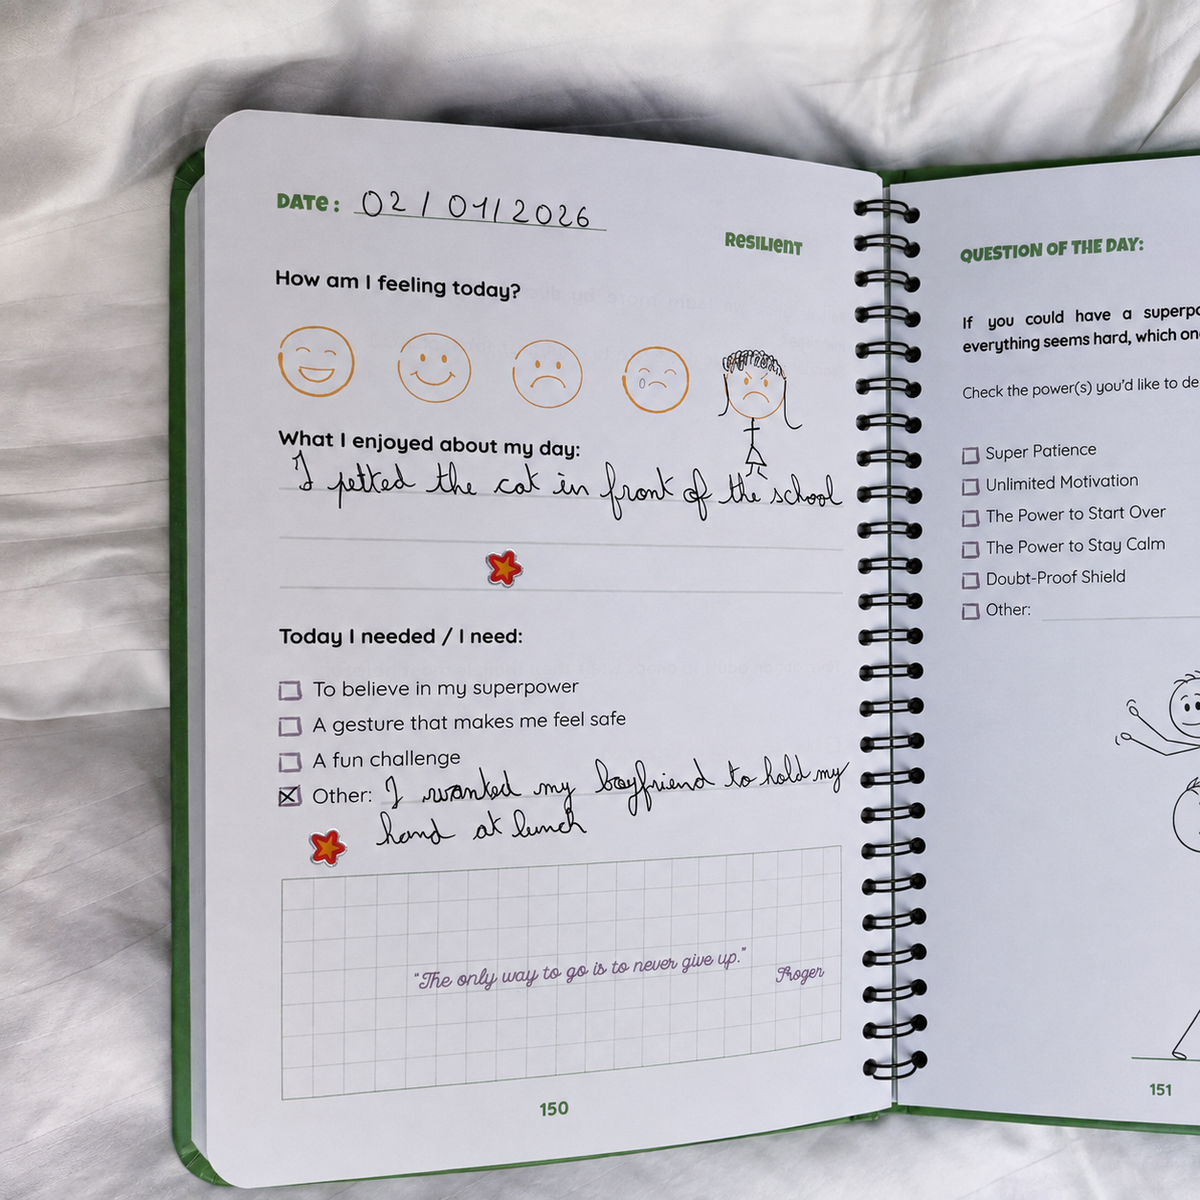 DATE: 02/01/2026
RESILIENT
How am I feeling today?
What I enjoyed about my day:
I petted the cat in front of the school
Today I needed / I need:
To believe in my superpower
A gesture that makes me feel safe
A fun challenge
Other: I wanted my boyfriend to hold my
hand at lunch
"The only way to go is to never give up."
Froger
150
QUESTION OF THE DAY:
If you could have a superpo
everything seems hard, which on
Check the power(s) you'd like to de
Super Patience
Unlimited Motivation
The Power to Start Over
The Power to Stay Calm
Doubt-Proof Shield
Other:
151